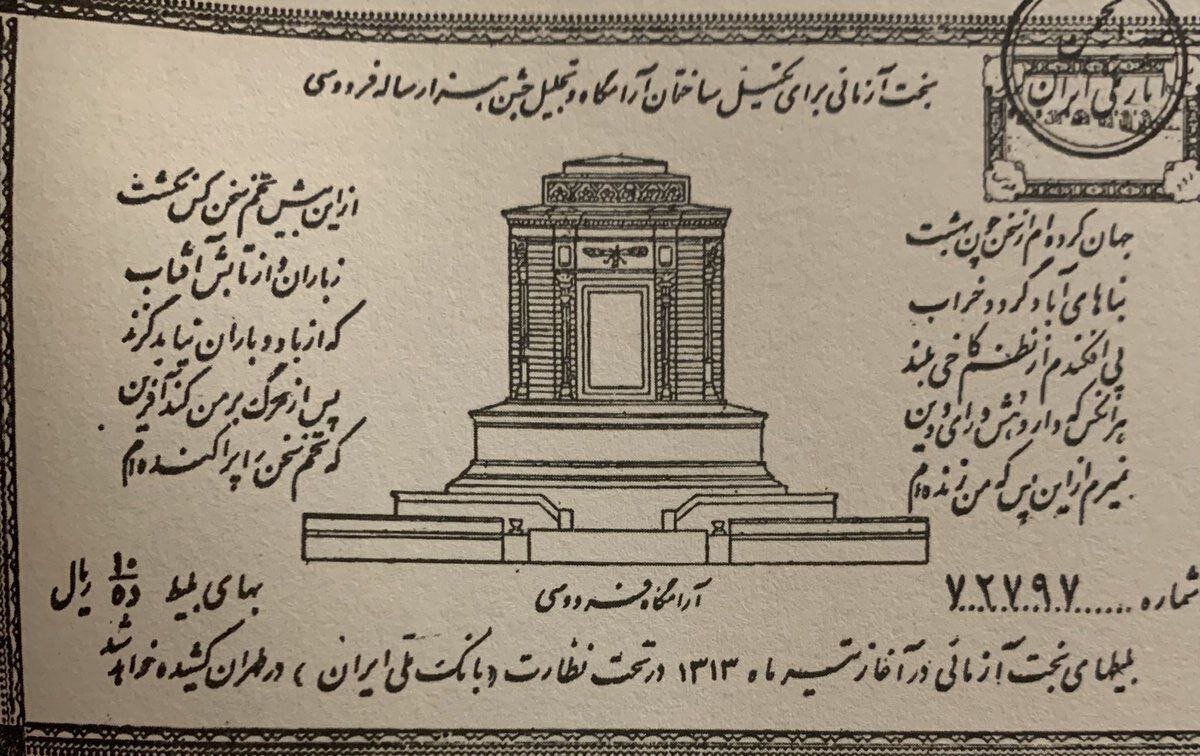 انجمن
آثار ملی ایران
بخت آزمائی برای تکمیل ساختمان آرامگاه و تجلیل جشن هزار ساله فردوسی
جهان کرده ام از سخن چون بهشت
از این بیش تخم سخن کس نکشت
بناهای آباد گردد خراب
ز باران و از تابش آفتاب
پی افکندم از نظم کاخی بلند
که از باد و باران نیابد گزند
هر آنکس که دارد هش و رای و دین
پس از مرگ بر من کند آفرین
نمیرم از این پس که من زنده ام
که تخم سخن را پراکنده ام
آرامگاه فردوسی
شماره ......۷۲۷۹۷
بهای بلیط ۱۰ ده ریال
بلیطهای بخت آزمائی در آغاز تیر ماه ۱۳۱۳ در تحت نظارت (بانک ملی ایران) در طهران کشیده خواهد شد